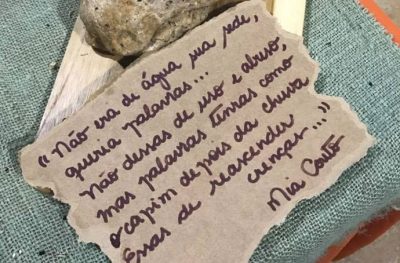 "Não era de água sua sede,
queria palavras...
Não dessas de uso e abuso,
mas palavras tenras como
o capim depois da chuva
Essas de reascender
crenças..."
Mia Couto